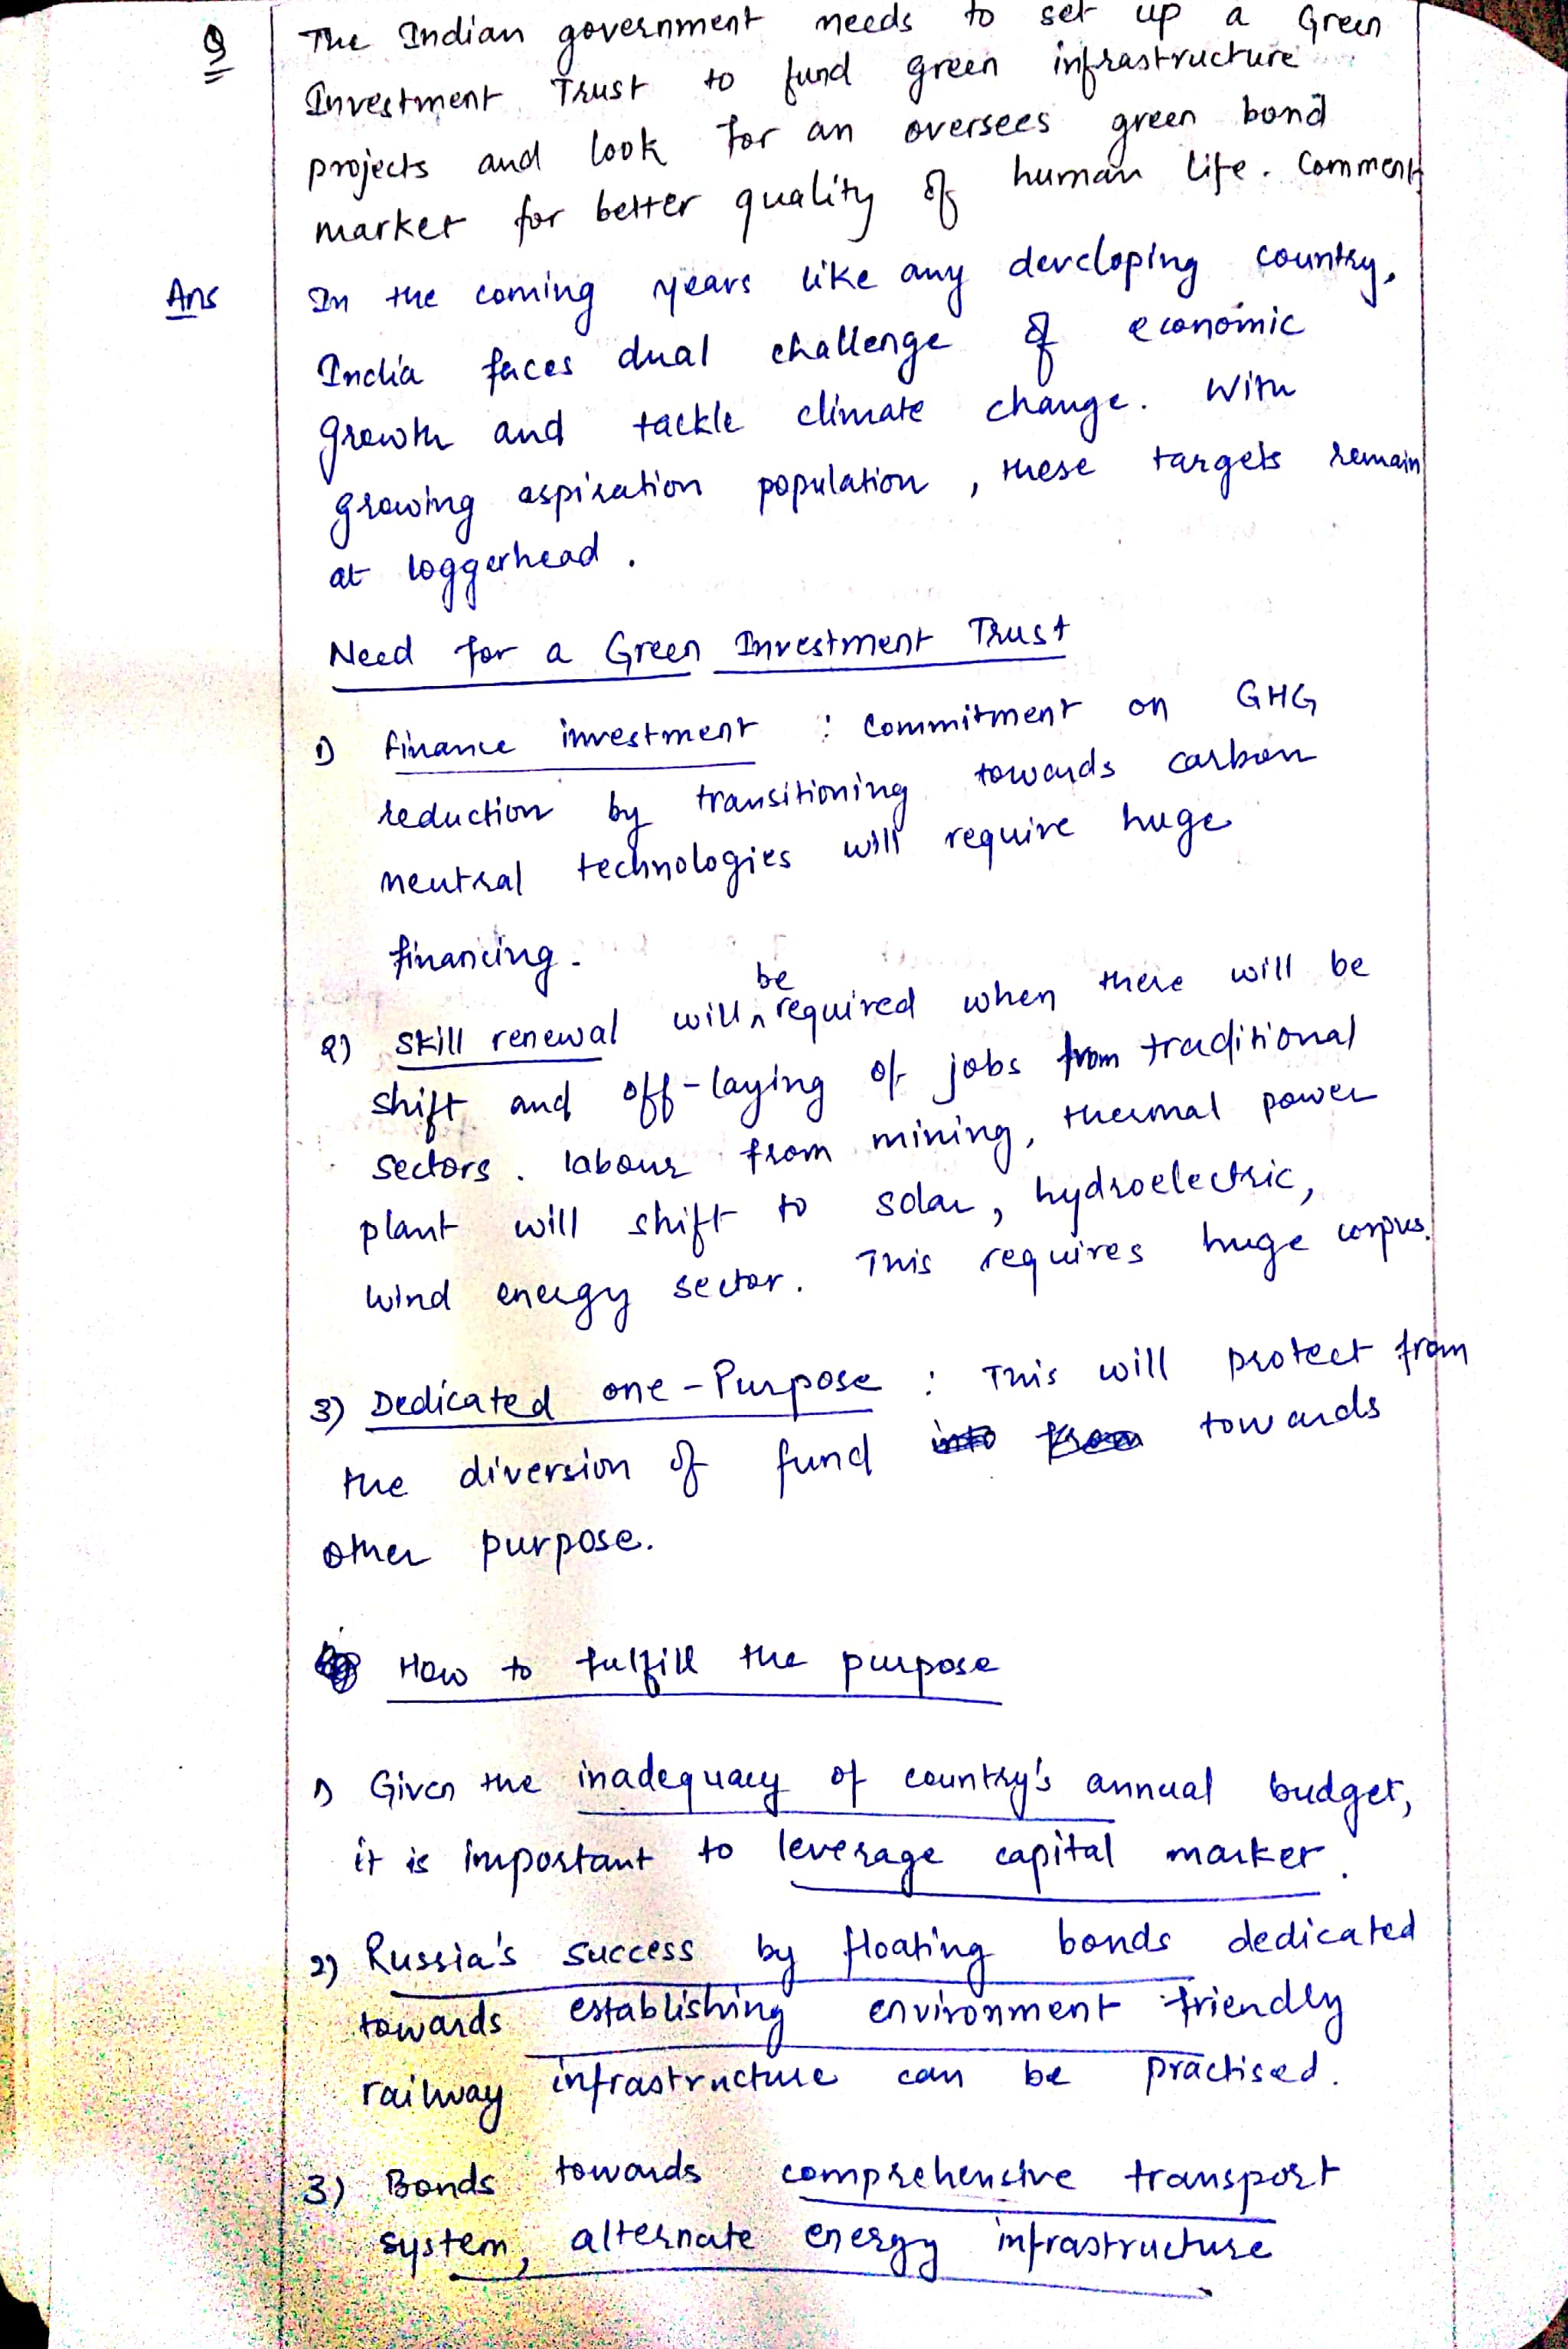 Q The Indian government needs to set up a Green
Investment Trust to fund green infrastructure
projects and look for an oversees green bond
market for better quality of human life. Comment
Ans In the coming years like any developing country,
India faces dual challenge of economic
growth and tackle climate change. With
growing aspiration population, these targets remain
at loggerhead.
Need for a Green Investment Trust
1) finance investment : Commitment on GHG
reduction by transitioning towards carbon
neutral technologies will require huge
financing.
2) Skill renewal will be required when there will be
shift and off-laying of jobs from traditional
sectors. labour from mining, thermal power
plant will shift to solar, hydroelectric,
wind energy sector. This requires huge corpus.
3) Dedicated one-Purpose : This will protect from
the diversion of fund towards
other purpose.
How to fulfill the purpose
1) Given the inadequacy of country's annual budget,
it is important to leverage capital market.
2) Russia's success by floating bonds dedicated
towards establishing environment friendly
railway infrastructure can be practised.
3) Bonds towards comprehensive transport
system, alternate energy infrastructure